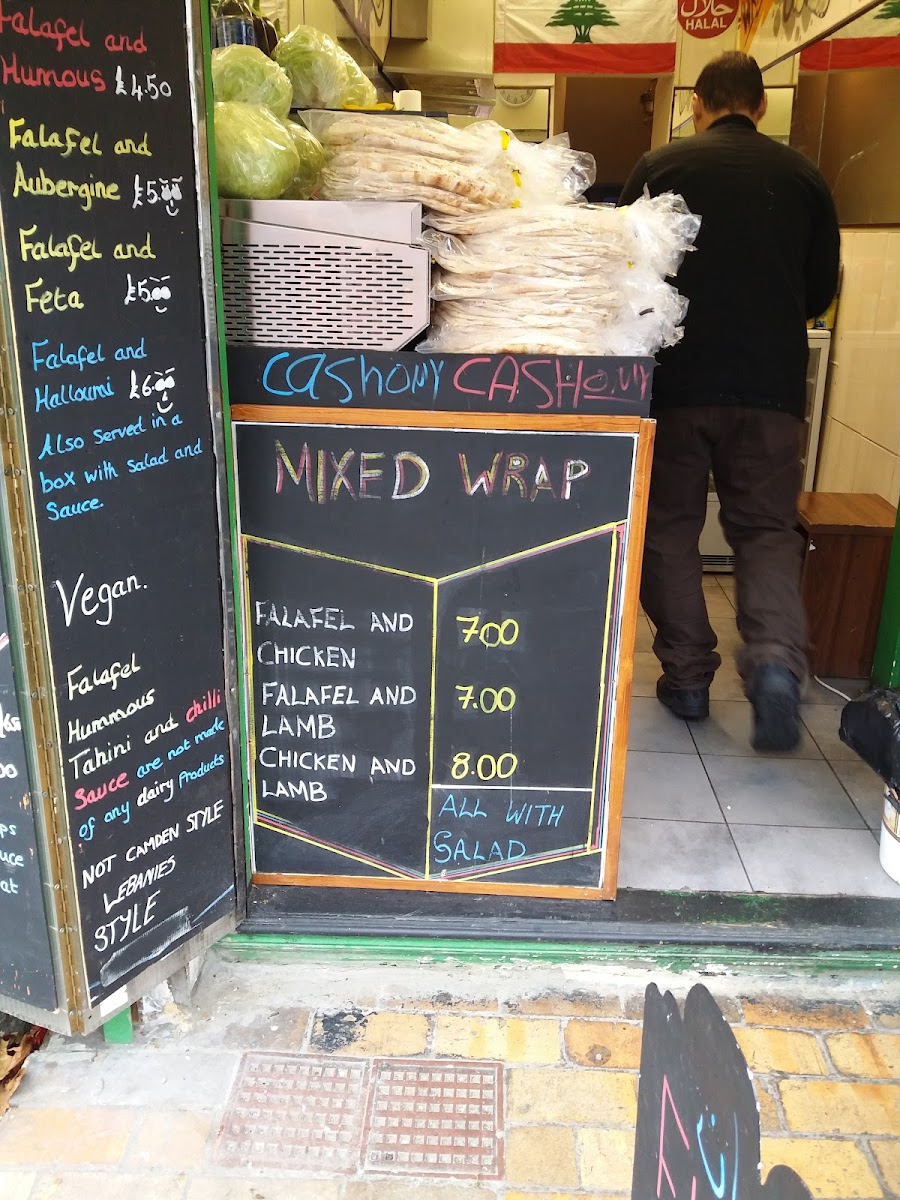 Falafel and
Humous £4.50
Falafel and
Aubergine £5.00
Falafel and
Feta £5.00
Falafel and
Halloumi £6.00
Also served in a
box with Salad and
Sauce.
Vegan.
Falafel
Hummous
Tahini and chilli
Sauce are not made
of any dairy Products
NOT CAMDEN STYLE
LEBANIES
STYLE
حلال
HALAL
CASHONY CASHONLY
MIXED WRAP
FALAFEL AND
CHICKEN
7.00
FALAFEL AND
LAMB
7.00
CHICKEN AND
LAMB
8.00
ALL WITH
SALAD